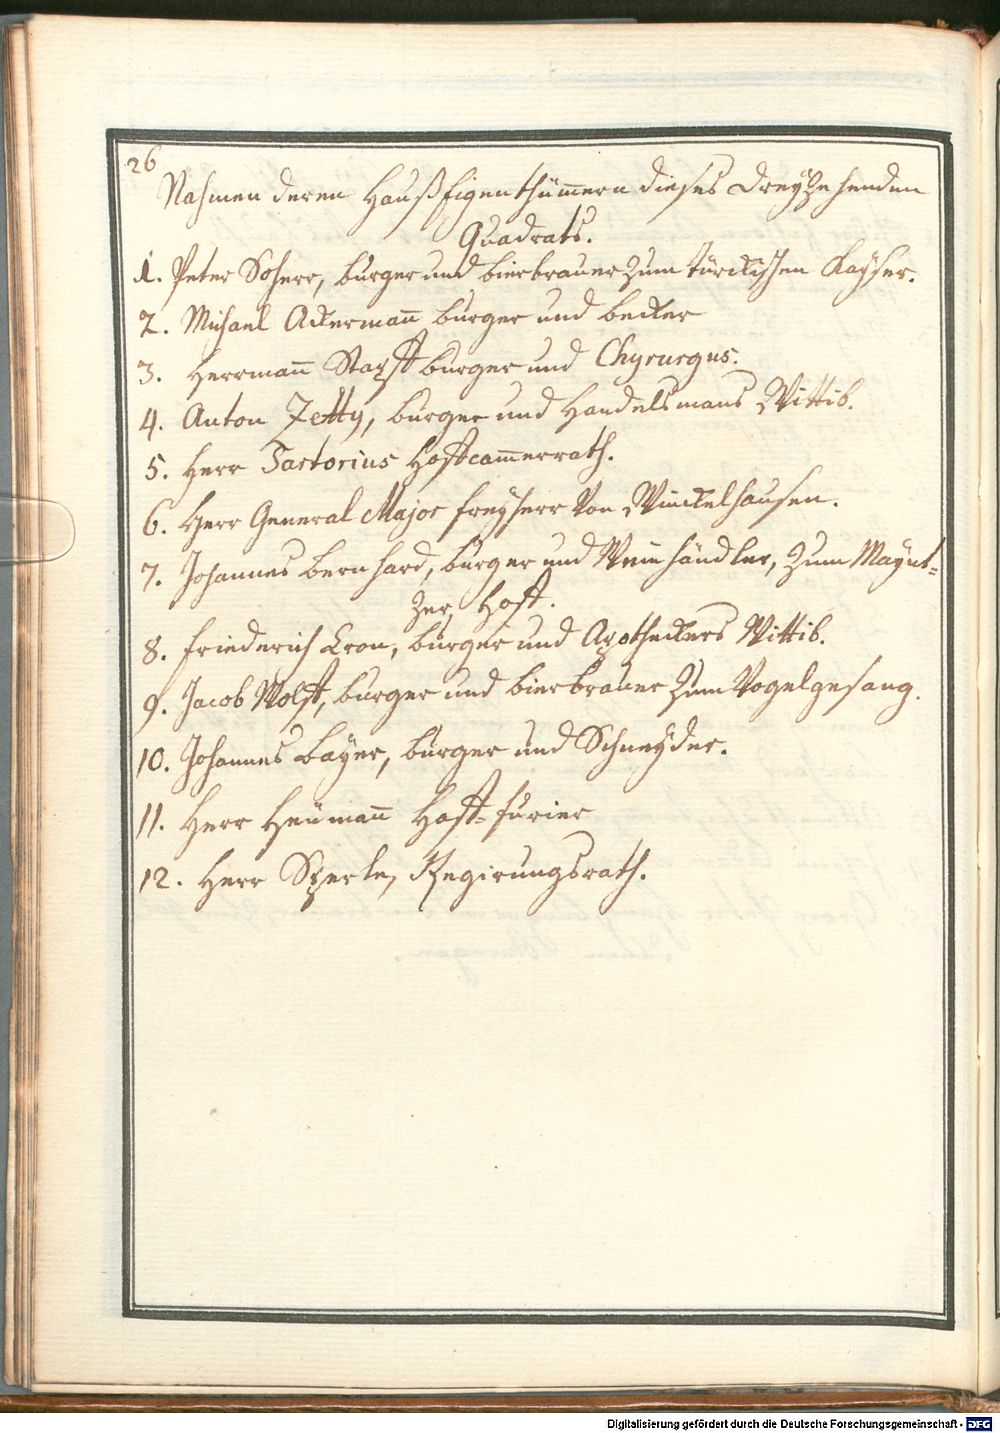 26
Nahmen deren Hauß Eigenthümmern dieses Dreyzehenden
Quadrats.
1. Peter Soherr, bürger und bierbrauer zum türckischen Kayser.
2. Michael Ackermañ bürger und becker
3. Herrmañ bürger und Chyrurgus.
4. Anton Zetty, bürger und Handelsmans Wittib.
5. Herr Sartorius Hoffcam̄errath.
6. Herr General Major freyherr von Winckelhausen.
7. Johannes Bernhard, bürger und Weinhändler, zum Maynt=
zer Hoff.
8. Friederich Cron, bürger und Apotheckers Wittib.
9. Jacob Wolff, bürger und bierbrauer zum Vogelgesang.
10. Johannes Bayer, bürger und Schneyder.
11. Herr Heümañ Hoff-furier
12. Herr Regirungsrath.
Digitalisierung gefördert durch die Deutsche Forschungsgemeinschaft - DFG